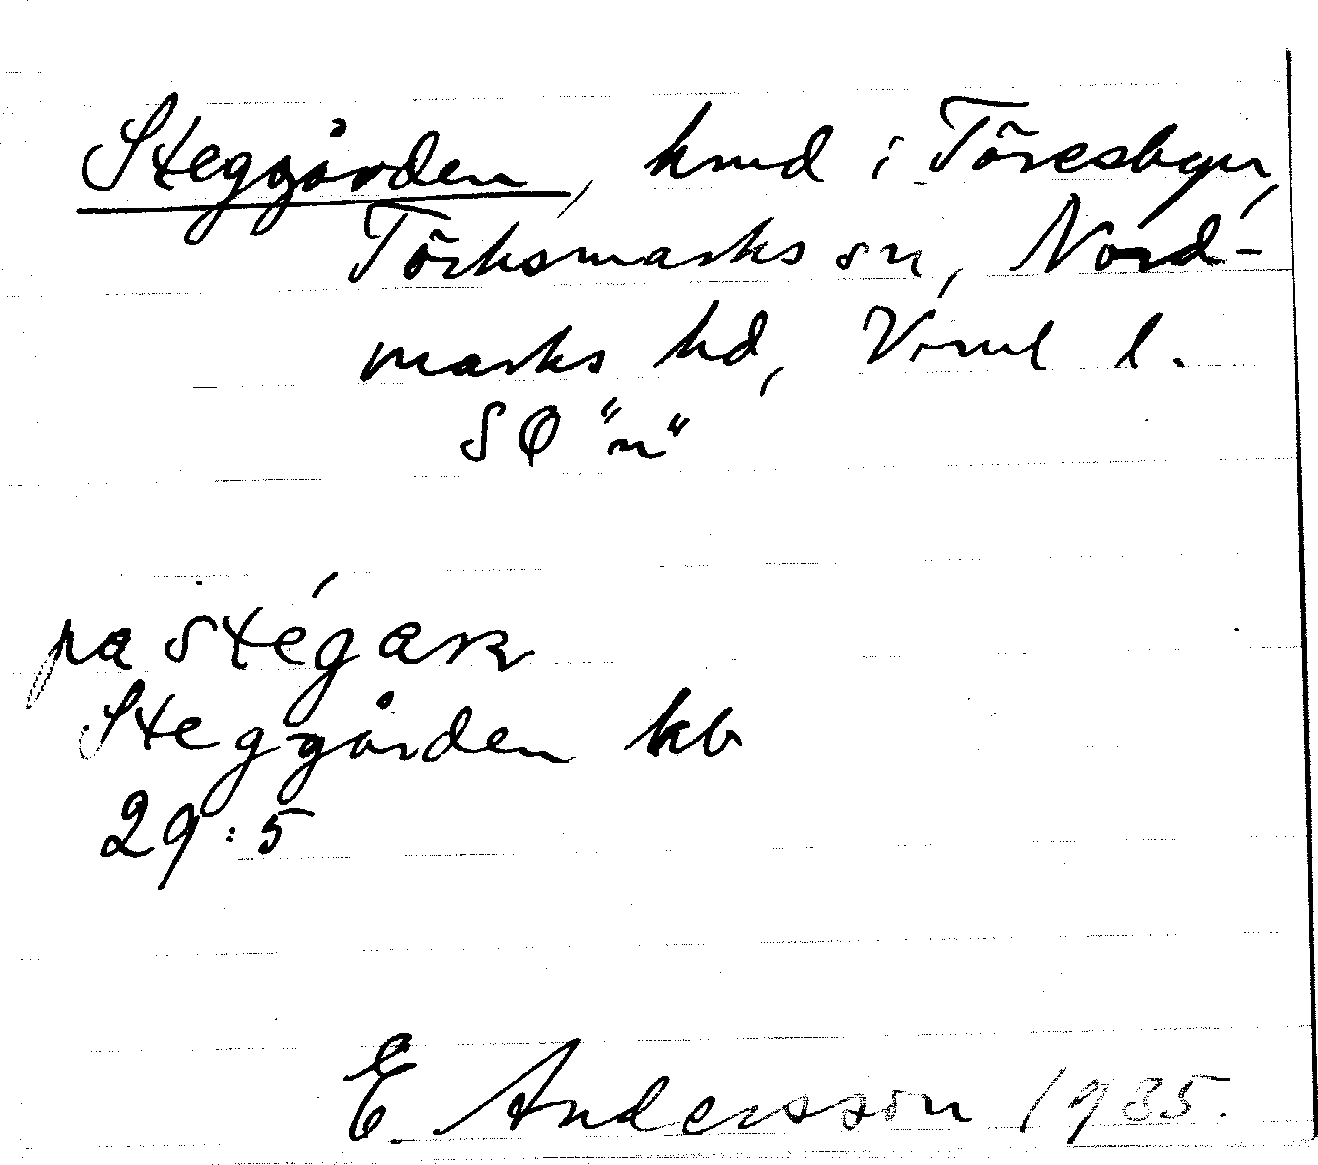 Steggården, hmd i Töresbyn,
Töcksmarks sn, Nord-
marks hd, Vrml l.
SO "n"
pa stégaʀ
Steggården kb
29:5
E Andersson 1935.